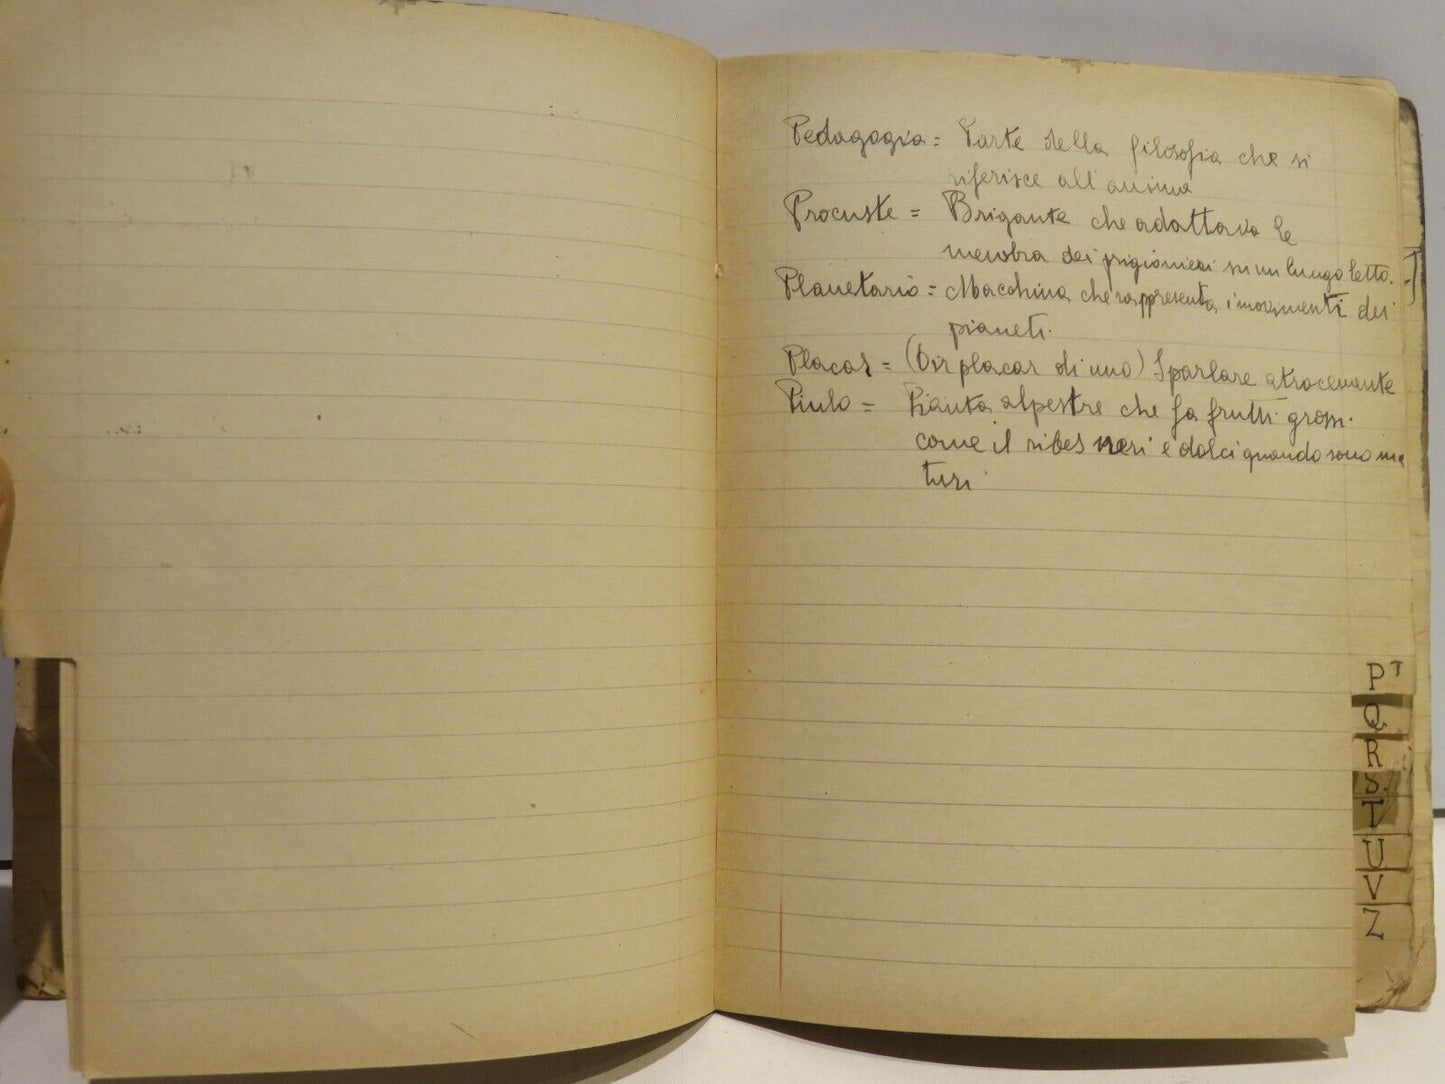 Pedagogia = Parte della filosofia che si
riferisce all'anima
Procuste = Brigante che adattava le
membra dei prigionieri su un lungo letto.
Planetario = Macchina che rappresenta i movimenti dei
pianeti.
= (Dir placas di uno) Sparlare atrocemente
Piulo = Pianta alpestre che fa frutti grossi
come il ribes neri e dolci quando sono ma
turi
P
Q
R
S
T
U
V
Z